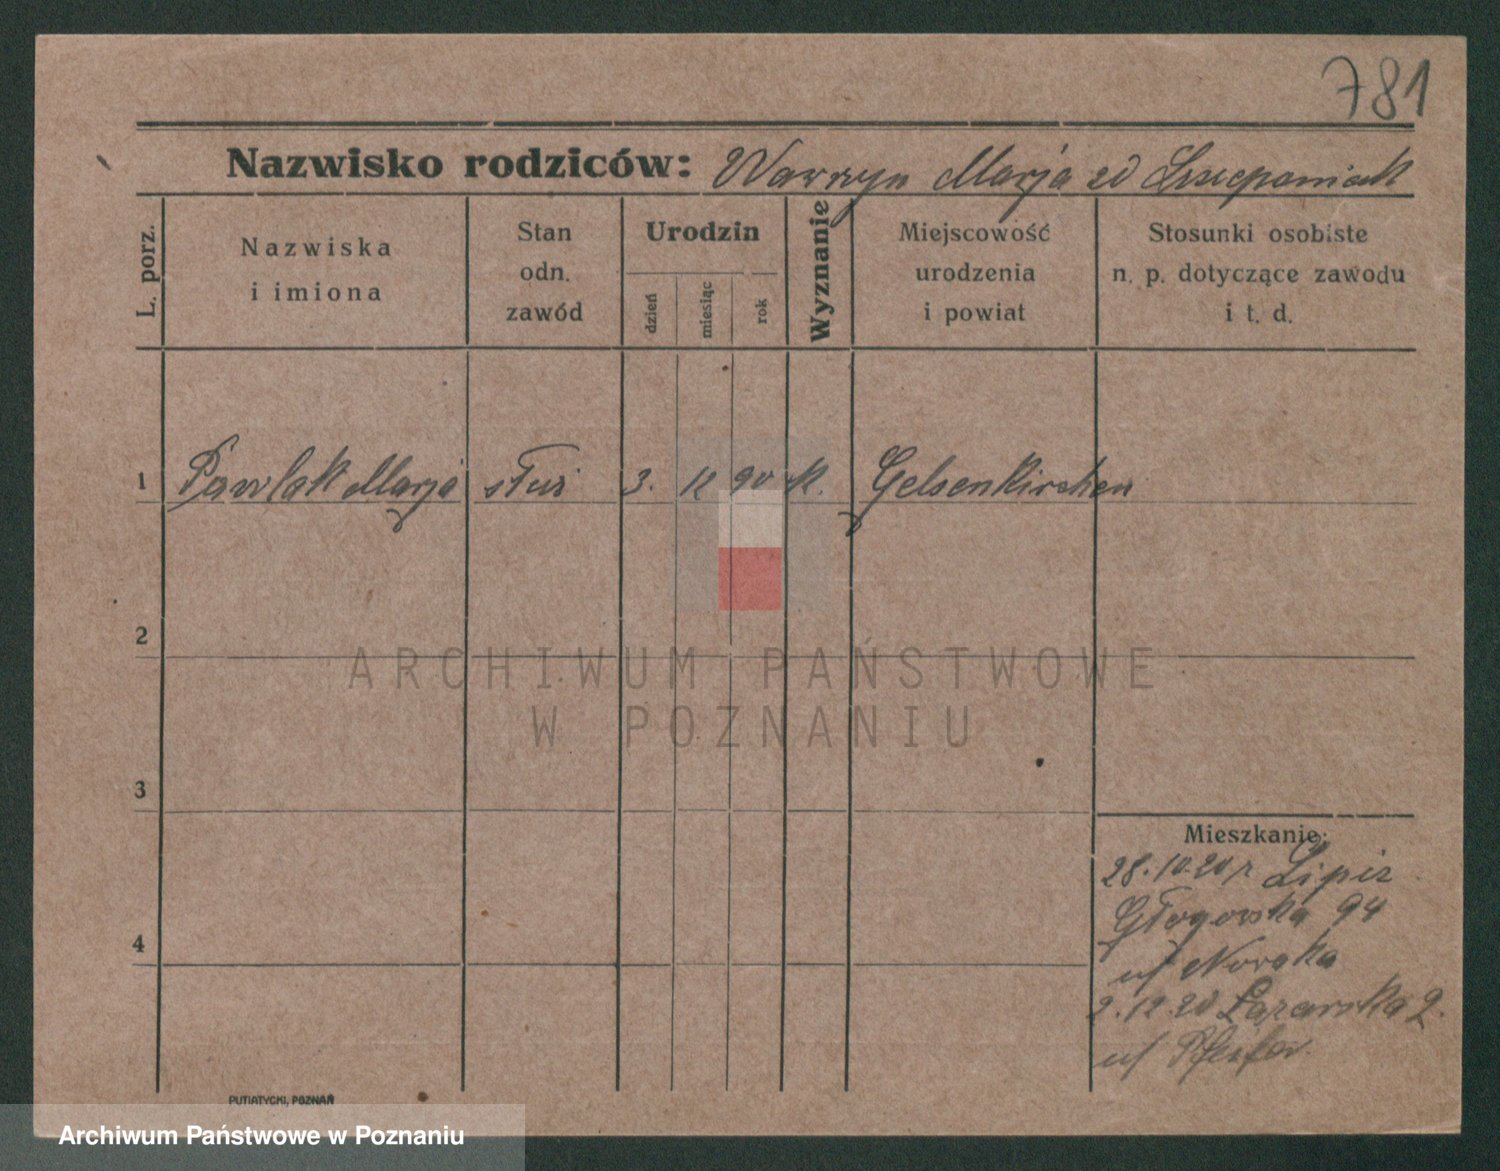 781
Nazwisko rodziców: Wawrzyn Marja zd Szczepaniak
L. porz.
Nazwiska
i imiona
Stan
odn.
zawód
Urodzin
dzień
miesiąc
rok
Wyznanie
Miejscowość
urodzenia
i powiat
Stosunki osobiste
n. p. dotyczące zawodu
i t. d.
1 Pawlak Marja służ 3. 12 90 k. Gelsenkirchen
2
ARCHIWUM PAŃSTWOWE
W POZNANIU
3
Mieszkanie:
28.10.20 r
Głogowska 94
4
u/ Nowaka
2.12.20 Łazarska 2.
u/
PUTIATYCKI, POZNAŃ
Archiwum Państwowe w Poznaniu